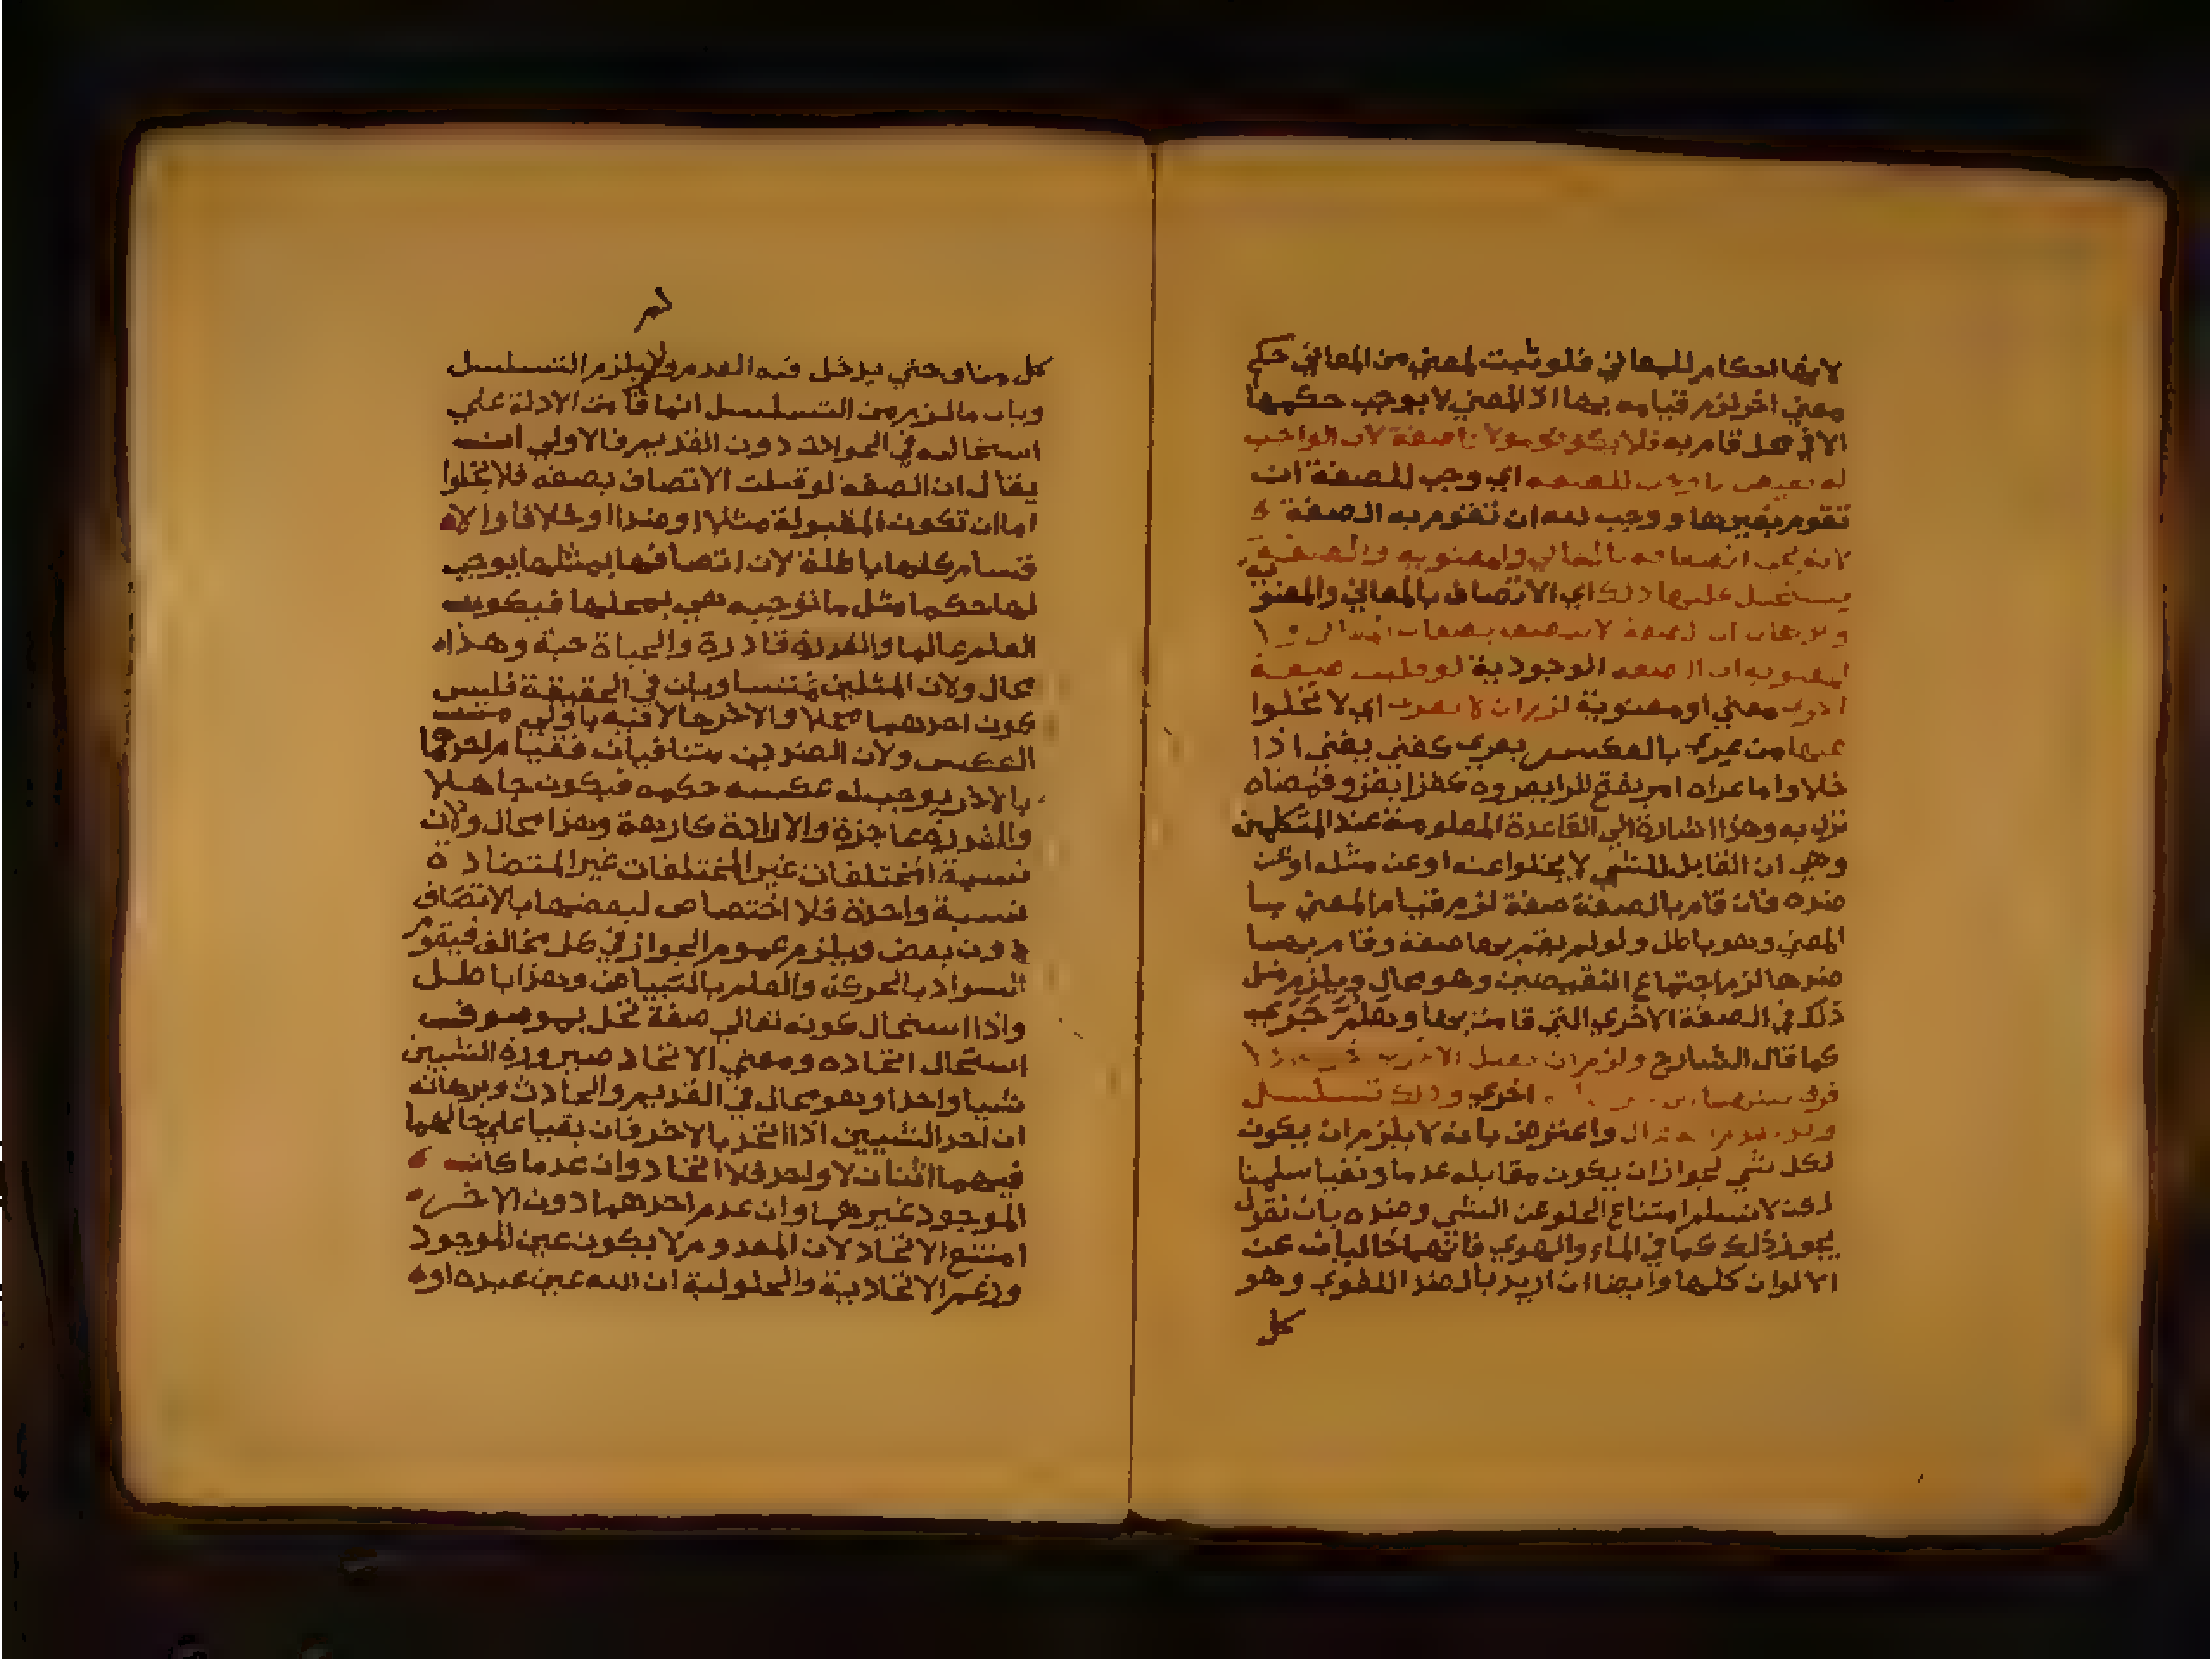 لانها احكام للمعاني فلو ثبت لمعني من المعاني حكم
معني اخر لزم قيامه بها اذ المعني لا يوجب حكمها
الا في محل قام به فلا يكون مولانا صفة لان الواجب
له نقيض ما وجب للصفه اي وجب للصفة ان
تقوم بغيرها ووجب له ان تقوم به الصفة
لانه يجب اتصافه بالمعاني والمعنويه والصفة
يستحيل عليها ذلك اي الاتصاف بالمعاني والمعنو
ية
وبرهان ان الصفة لا تتصف بصفات المعاني ولا
المعنويه ان الصفه الوجودية لو قبلت صفة
اخري معني او معنوية لزم ان لا تعري اي لا تخلوا
عنها من عري بالكسر يعري كفني يفني اذا
خلا واما عراه امر بفتح الرا يعروه كغزا يغزو فمعناه
نزل به وهذا اشارة الي القاعدة المعلومة عند المتكلمين
وهي ان القابل للشي لا يخلوا عنه او عن مثله او عن
ضده فان قام بالصفة صفة لزم قيام المعني با
المعني وهو باطل ولو لم يقم بها صفة وقام بها
ضدها لزم اجتماع النقيضين وهو محال ويلزم مثل
ذلك في الصفة الاخري التي قامت بها وهلم جري
كما قال الشارح ولزم ان تقبل الاخري
اخري وذلك تسلسل
واعترض بانه لا يلزم ان يكون
لكل شي لجواز ان يكون مقابله عدما ونفيا سلمنا
لكن لا نسلم امتناع الخلو عن الشي وضده بان نقول
يجوز ذلك كما في الماء والهوي فانهما خاليان عن
الالوان كلها وايضا ان اريد بالضد اللغوي وهو
كل
كل مناف حتي يدخل فيه العدم ولا يلزم التسلسل
وبان ما لزم من التسلسل انما قامت الادلة علي
استحالته في الحوادث دون القديم فالاولي ان
يقال ان الصفه لو قبلت الاتصاف بصفه فلا يخلوا
اما ان تكون المقبولة مثلا او ضدا او خلافا والا
قسام كلها باطلة لان اتصافها بمثلها يوجب
لها حكما مثل ما توجبه هي بمحلها فيكون
العلم عالما والقدرة قادرة والحياة حية وهذا
محال ولان المثلين متساويان في الحقيقة فليس
كون احدهما محلا والاخر حالا فيه باولي من
العكس ولان الضدين متنافيان فقيام احدهما
بالاخر يوجب له عكس حكمه فيكون جاهلا
والقدرة عاجزة والارادة كارهة وهذا محال ولان
نسبة المختلفات غير المختلفات غير المتضادة
نسبة واحدة فلا اختصاص لبعضها بالاتصاف
دون بعض ويلزم عموم الجواز في كل مخالف فيقوم
السواد بالحركة والعلم بالبياض وهذا باطل
واذا استحال كونه تعالي صفة تحل بموصوف
استحال اتحاده ومعني الاتحاد صيرورة الشيين
شيا واحدا وهو محال في القديم والحادث وبرهانه
ان احد الشيين اذا اتحد بالاخر فان بقيا علي حالهما
فهما اثنان لا واحد فلا اتحاد وان عدما كان
الموجود غيرهما وان عدم احدهما دون الاخر
امتنع الاتحاد لان المعدوم لا يكون عين الموجود
وزعم الاتحادية والحلولية ان الله عين عبده او